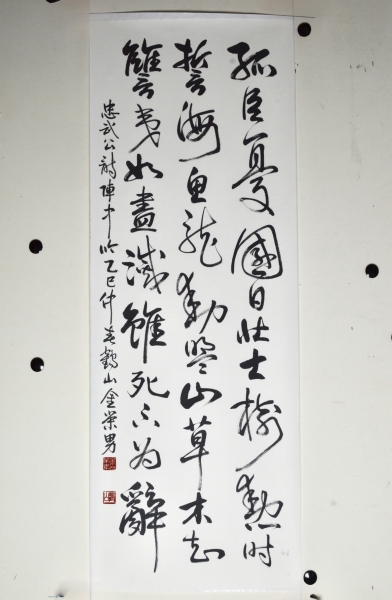 孤臣憂國日壯士樹勳時
誓海魚龍動盟山草木知
讐夷如盡滅雖死不为辭
忠武公詩陣中吟乙巳仲春鶴山金榮男